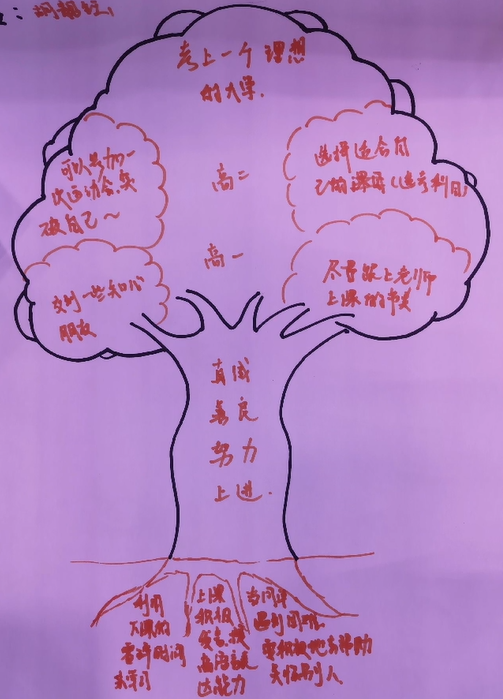 考上一个理想
的大学.
可以参加一
次运动会,突
破自己~
高二
选择适合自
己的课程(选考科目)
高一
交到一些知心
朋友
尽量跟上老师
上课的节奏
真诚
善良
努力
上进.
利用
下课的
零碎时间
来学习
上课
积极
发言,提
高语言表
达能力
当同学
遇到困难,
要积极地去帮助
关怀别人